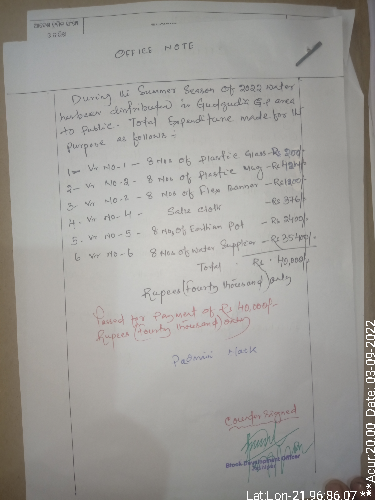 OFFICE NOTE
During the Summer Season of 2022 water
hasbeen distributed in Gudgudia G.P area
to public. Total Expenditure made for the
purpose as follows:-
1- Vr No-1 - 8 Nos of Plastic Glass - Rs 200/-
2- Vr No-2 - 8 Nos of Plastic Mug - Rs 424/-
3- Vr No-3 - 8 Nos of Flex Banner - Rs 1200/-
4- Vr No-4 - Salu Cloth - Rs 376/-
5- Vr No-5 - 8 Nos of Earthen Pot - Rs 2400/-
6 Vr No-6 - 8 Nos of Water Supplier - Rs 35400/-
Total - Rs. 40,000/-
Rupees (Fourty thousand) only
Passed for Payment of Rs 40,000/-
Rupees (Fourty thousand) only
Padmini Nack
Counter Signed
Block Development Officer
Lat:Lon-21.96:86.07 ***Acur:20.00, Date: 03-09-2022